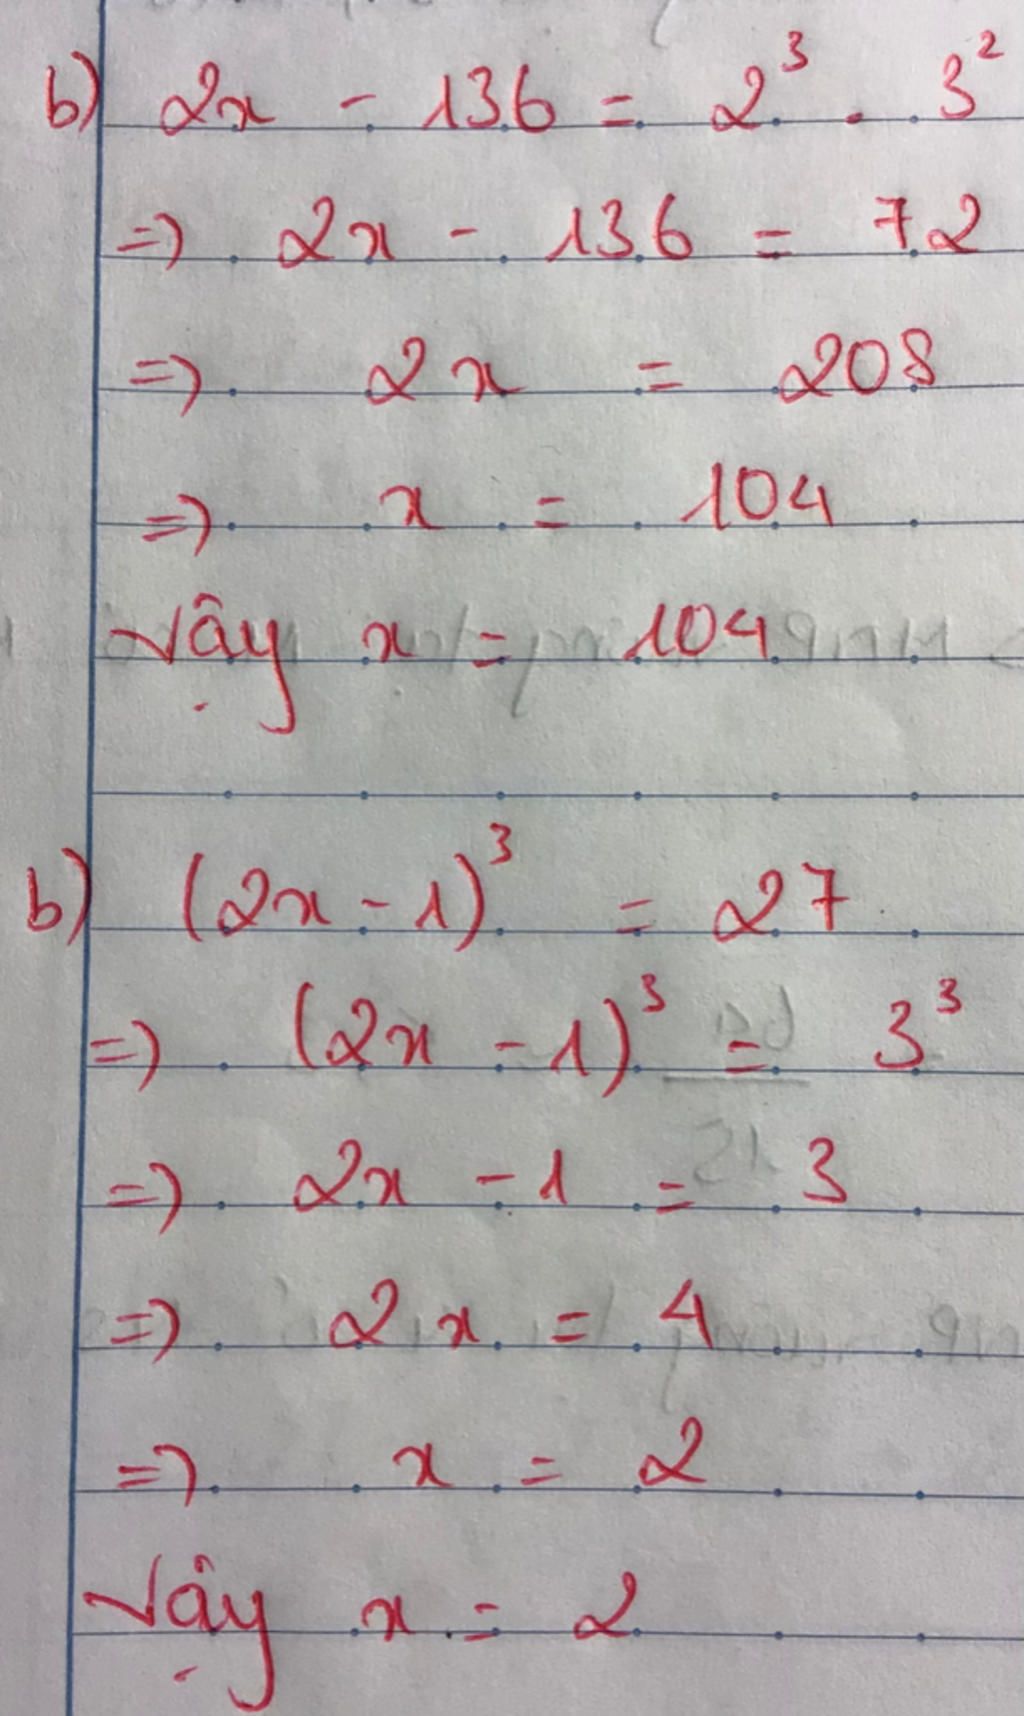 b) 2x - 136 = 2³ . 3²
=> 2x - 136 = 72
=> 2x = 208
=> x = 104
Vậy x = 104
b) (2x - 1)³ = 27
=> (2x - 1)³ = 3³
=> 2x - 1 = 3
=> 2x = 4
=> x = 2
Vậy x = 2